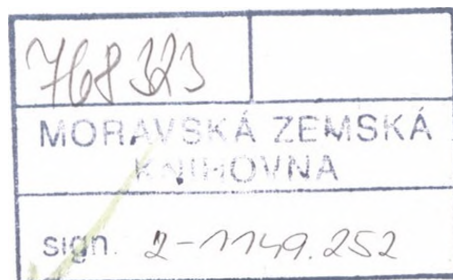 768323
MORAVSKÁ ZEMSKÁ
KNIHOVNA
sign. 2-1149.252